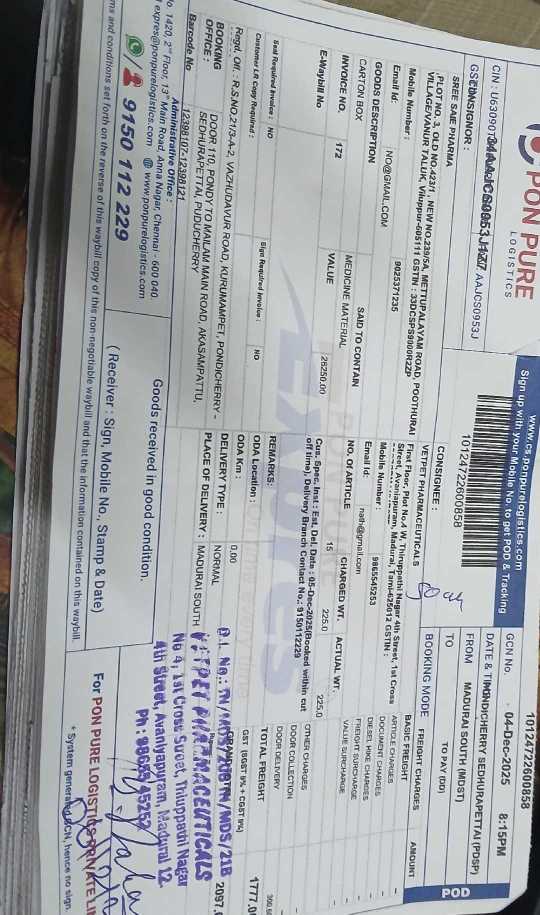 PON PURE
LOGISTICS
www.cs.ponpurelogistics.com
Sign up with your Mobile No. to get POD & Tracking
10124722600858
10124722600858
GCN No.
04-Dec-2025 8:15PM
DATE & TIME
FROM
PONDICHERRY SEDHURAPETTAI (PDSP)
TO
MADURAI SOUTH (MDST)
POD
BOOKING MODE
TO PAY (DD)
CONSIGNOR :
SREE SAIE PHARMA
,PLOT NO. 3, OLD NO.422/1 , NEW NO.239/5A, METTUPALAYAM ROAD, POOTHURAI
VILLAGE/VANUR TALUK, Viluppur-605111 GSTIN : 33DCSPS9900R2ZP
Mobile Number : 9025371235
Email Id: NO@GMAIL.COM
CONSIGNEE :
VETPET PHARMACEUTICALS
First Floor, Plot No.4 W, Thiruppathi Nagar 4th Street, 1st Cross
Street, Avaniapuram, Madurai, Tamil-625012 GSTIN :
Mobile Number : 9865545253
Email Id: nath@gmail.com
GOODS DESCRIPTION
SAID TO CONTAIN
NO. Of ARTICLE
CHARGED WT.
ACTUAL WT.
CARTON BOX
MEDICINE MATERIAL
15
225.0
225.0
INVOICE NO.
VALUE
172
26250.00
E-Waybill No
Cus. Spec. Inst : Est. Del. Date : 05-Dec-2025(Booked within cut
off time), Delivery Branch Contact No.: 9150112229
REMARKS:
FREIGHT CHARGES
AMOUNT
BASIC FREIGHT
ARTICLE CHARGES
DOCUMENT CHARGES
DIESEL HIKE CHARGES
FREIGHT SURCHARGE
VALUE SURCHARGE
OTHER CHARGES
DOOR COLLECTION
DOOR DELIVERY
TOTAL FREIGHT
1777.0
GST (SGST 9% + CGST 9%)
2097.
Seal Required Invoice : NO
Customer LR Copy Required :
Sign Required Invoice : NO
ODA Location :
ODA Km : 0.00
DELIVERY TYPE : NORMAL
PLACE OF DELIVERY : MADURAI SOUTH
Regd. Off. : R.S.NO.21/3-A-2, VAZHUDAVUR ROAD, KURUMAMPET, PONDICHERRY -
BOOKING
OFFICE :
DOOR 110, PONDY TO MAILAM MAIN ROAD, AKASAMPATTU,
SEDHURAPETTAI, PUDUCHERRY
Barcode No 12398107-12398121
Administrative Office :
No. 1420, 2nd Floor, 13th Main Road, Anna Nagar, Chennai - 600 040.
expres@ponpurelogistics.com @ www.ponpurelogistics.com
9150 112 229
Goods received in good condition.
( Receiver : Sign, Mobile No., Stamp & Date)
VETPET PHARMACEUTICALS
No 4, 1st Cross Street, Thiuppathi Nagar
4th Street, Avaniyapuram, Madurai 12.
For PON PURE LOGISTICS PRIVATE LI
* System generated GCN, hence no sign.
ms and conditions set forth on the reverse of this waybill copy of this non-negotiable waybill and that the information contained on this waybill.